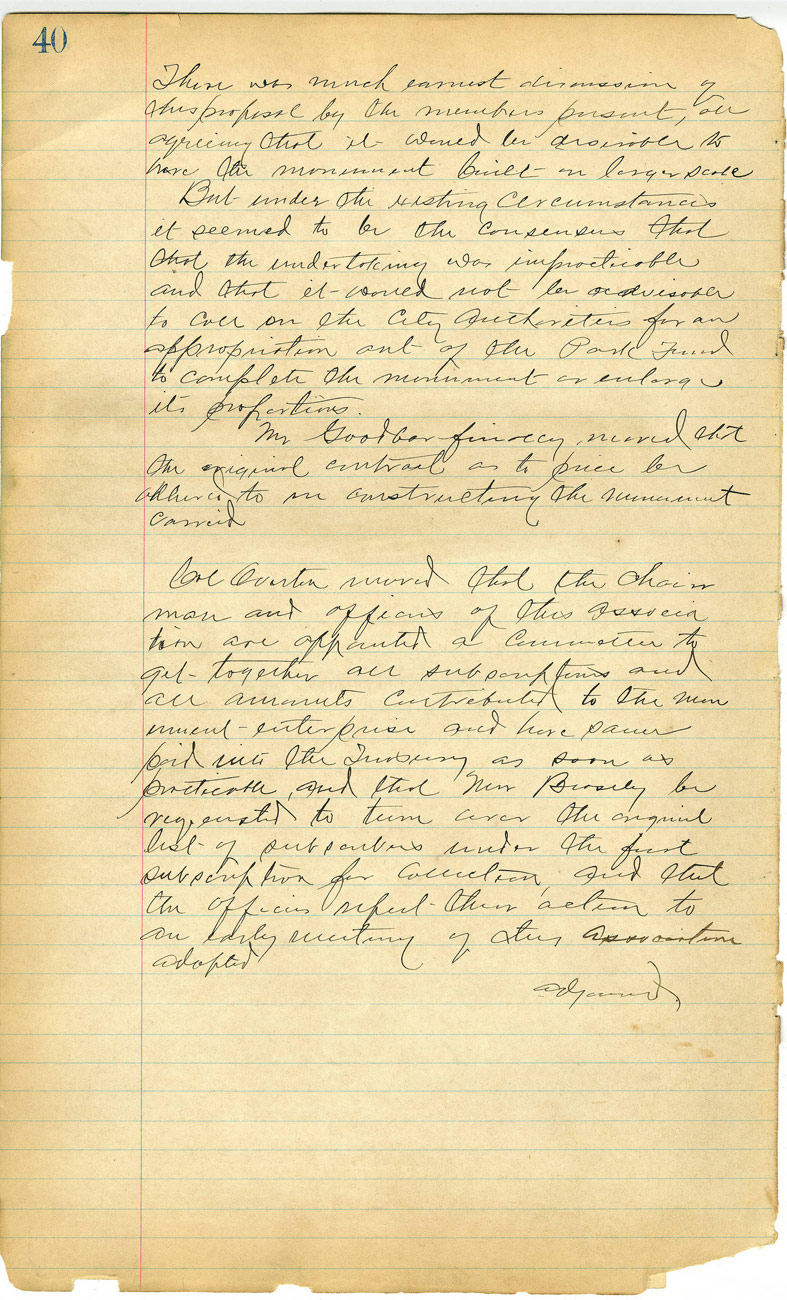 40
There was much earnest discussion of
this proposal by the members present, all
agreeing that it would be desirable to
have the monument built on larger scale
But under the existing circumstances
it seemed to be the consensus that
that the undertaking was impracticable
and that it would not be advisable
to call on the City Authorities for an
appropriation out of the Park Fund
to complete the monument or enlarge
its proportions.
Mr Goodbar finally moved that
the original contract as to price be
adhered to in constructing the monument
carried
Col Overton moved that the chair
man and officers of this associa
tion are appointed a committee to
get together all subscriptions and
all amounts contributed to the mon
ument enterprise and have same
paid into the Treasury as soon as
practicable, and that Mr be
requested to turn over the original
list of subscribers under the first
subscription for collection, and that
the officers report their action to
an early meeting of this association
adopted
adjourned,